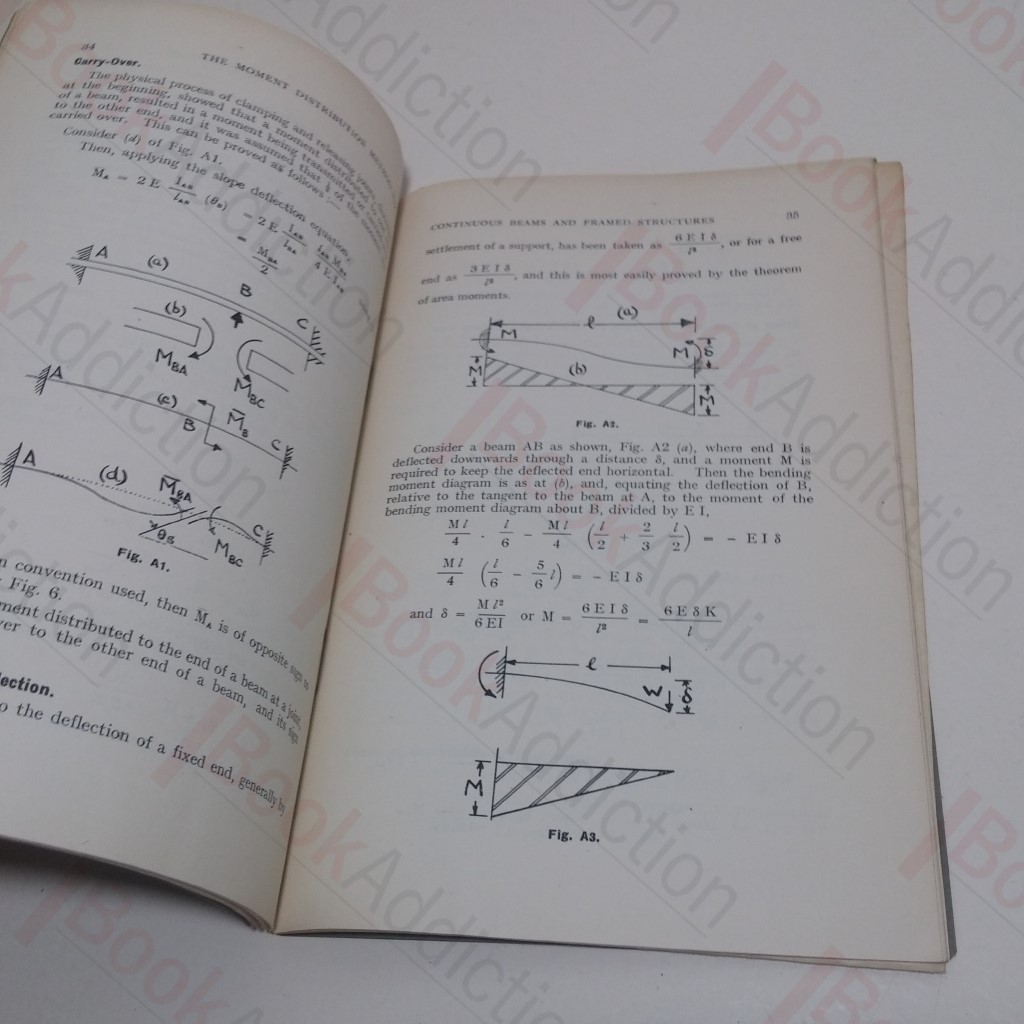 34
THE MOMENT DISTRIBUTION
Carry-Over.
The physical process of clamping and releasing
at the beginning, showed that a moment distributed
of a beam, resulted in a moment being transmitted
to the other end, and it was assumed that ½ of the
carried over. This can be proved as follows:—
Consider (d) of Fig. A1.
Then, applying the slope deflection equation,
A
(a)
B
C
(b)
M_BA
M_BC
A
(c)
B
M̅_B
C
A
(d)
M̅_BA
θ_B
M_BC
C
Fig. A1.
n convention used, then M_A is of opposite sign to
Fig. 6.
ment distributed to the end of a beam at a joint,
ver to the other end of a beam, and its sign
ection.
o the deflection of a fixed end, generally by
CONTINUOUS BEAMS AND FRAMED STRUCTURES 35
settlement of a support, has been taken as 6 E I δ / l², or for a free
end as 3 E I δ / l², and this is most easily proved by the theorem
of area moments.
l (a)
M
M δ
M (b)
M
Fig. A2.
Consider a beam AB as shown, Fig. A2 (a), where end B is
deflected downwards through a distance δ, and a moment M is
required to keep the deflected end horizontal. Then the bending
moment diagram is as at (b), and, equating the deflection of B,
relative to the tangent to the beam at A, to the moment of the
bending moment diagram about B, divided by E I,
M l / 4 . l / 6 − M l / 4 (l / 2 + 2 / 3 l / 2) = − E I δ
M l / 4 (l / 6 − 5 / 6 l) = − E I δ
and δ = M l² / 6 EI or M = 6 E I δ / l² = 6 E δ K / l
l
W δ
M
Fig. A3.
BookAddiction